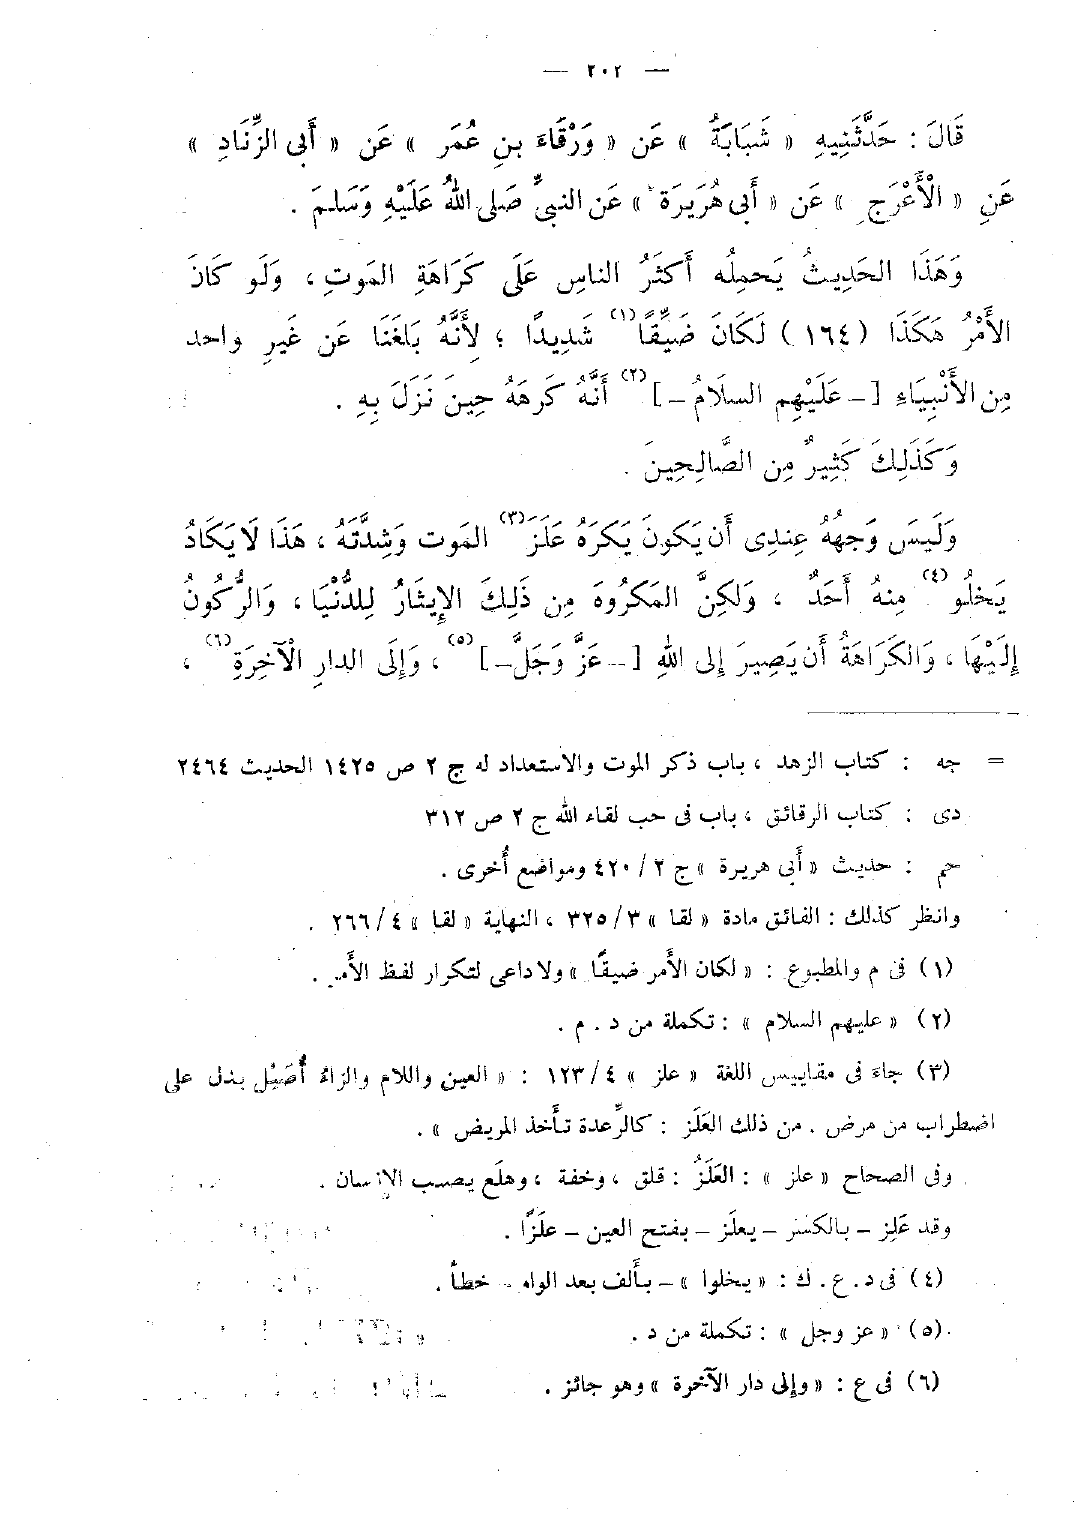 — ٢٠٢ —
قَالَ : حَدَّثَنِيهِ « شَبَابَةُ » عَن « وَرْقَاءَ بنِ عُمَر » عَن « أَبى الزِّنَادِ »
عَنِ « الْأَعْرَجِ » عَن « أَبى هُرَيرَةَ » عَن النبىِّ صَلى اللهُ عَلَيْهِ وَسَلمَ .
وَهَذَا الحَدِيثُ يَحمِلُه أَكثَرُ الناسِ عَلَى كَرَاهَةِ المَوتِ ، وَلَو كَانَ
الأَمْرُ هَكَذَا (١٦٤) لَكَانَ ضَيِّقًا(١) شَدِيدًا ؛ لِأَنَّهُ بَلَغَنَا عَن غَيرِ واحد
مِن الأَنْبِيَاءِ [ – عَلَيْهِم السلَامُ – ](٢) أَنَّهُ كَرِهَهُ حِينَ نَزَلَ بِهِ .
وَكَذَلِكَ كَثِيرٌ مِن الصَّالِحِينَ .
وَلَيسَ وَجهُهُ عِندِى أَن يَكونَ يَكرَهُ عَلَزَ(٣) المَوت وَشِدَّتَهُ ، هَذَا لَا يَكَادُ
يَخلُو(٤) مِنهُ أَحَدٌ ، وَلَكِنَّ المَكرُوهَ مِن ذَلِكَ الإِيثَارُ لِلدُّنْيَا ، وَالرُّكُونُ
إِلَيْهَا ، وَالكَرَاهَةُ أَن يَصِيرَ إِلى اللهِ [ – عَزَّ وَجَلَّ – ](٥) ، وَإِلَى الدارِ الْآخِرَةِ(٦) ،
= جه : كتاب الزهد ، باب ذكر الموت والاستعداد له ج ٢ ص ١٤٢٥ الحديث ٢٤٦٤
دى : كتاب الرقائق ، باب فى حب لقاء الله ج ٢ ص ٣١٢
حم : حديث « أَبى هريرة » ج ٢ / ٤٢٠ ومواضع أُخرى .
وانظر كذلك : الفائق مادة « لقا » ٣ / ٣٢٥ ، النهاية « لقا » ٤ / ٢٦٦ .
(١) فى م والمطبوع : « لكان الأَمر ضيقًا » ولا داعى لتكرار لفظ الأَمر .
(٢) « عليهم السلام » : تكملة من د . م .
(٣) جاءَ فى مقاييس اللغة « علز » ٤ / ١٢٣ : « العين واللام والزاءُ أُصَيْل يدل على
اضطراب من مرض . من ذلك العَلَز : كالرِّعدة تأْخذ المريض » .
وفى الصحاح « علز » : العَلَزُ : قلق ، وخفة ، وهلَع يصيب الإنسان .
وقد عَلِز – بالكسر – يعلَز – بفتح العين – علَزًا .
(٤) فى د . ع . ك : « يخلوا » – بأَلف بعد الواو – خطأ .
(٥) « عز وجل » : تكملة من د .
(٦) فى ع : « وإلى دار الآخرة » وهو جائز .